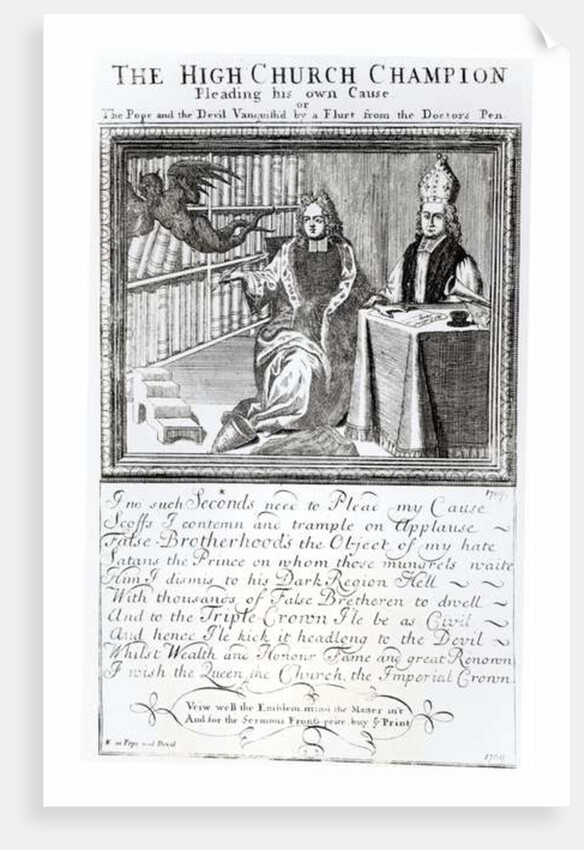 THE HIGH CHURCH CHAMPION
Pleading his own Cause
or
The Pope and the Devil Vanquish'd by a Flurt from the Doctors Pen
1709.
I no such Seconds* need to Plead my Cause
Scoffs I contemn and trample on Applause
False-Brotherhood's the Object of my hate
Satans the Prince on whom those mungrels waite
Him I dismis to his Dark Region Hell
With thousands of False Bretheren to dwell
And to the Triple-Crown I'le be as Civil
And hence I'le kick it headlong to the Devil
Whilst Wealth and Honour Fame and great Renown
I wish the Queen, the Church, the Imperial Crown
Veiw well the Emblem, mind the Matter in't
And for the Sermons Frontispeice buy ye Print
* as Pope and Devil
1709